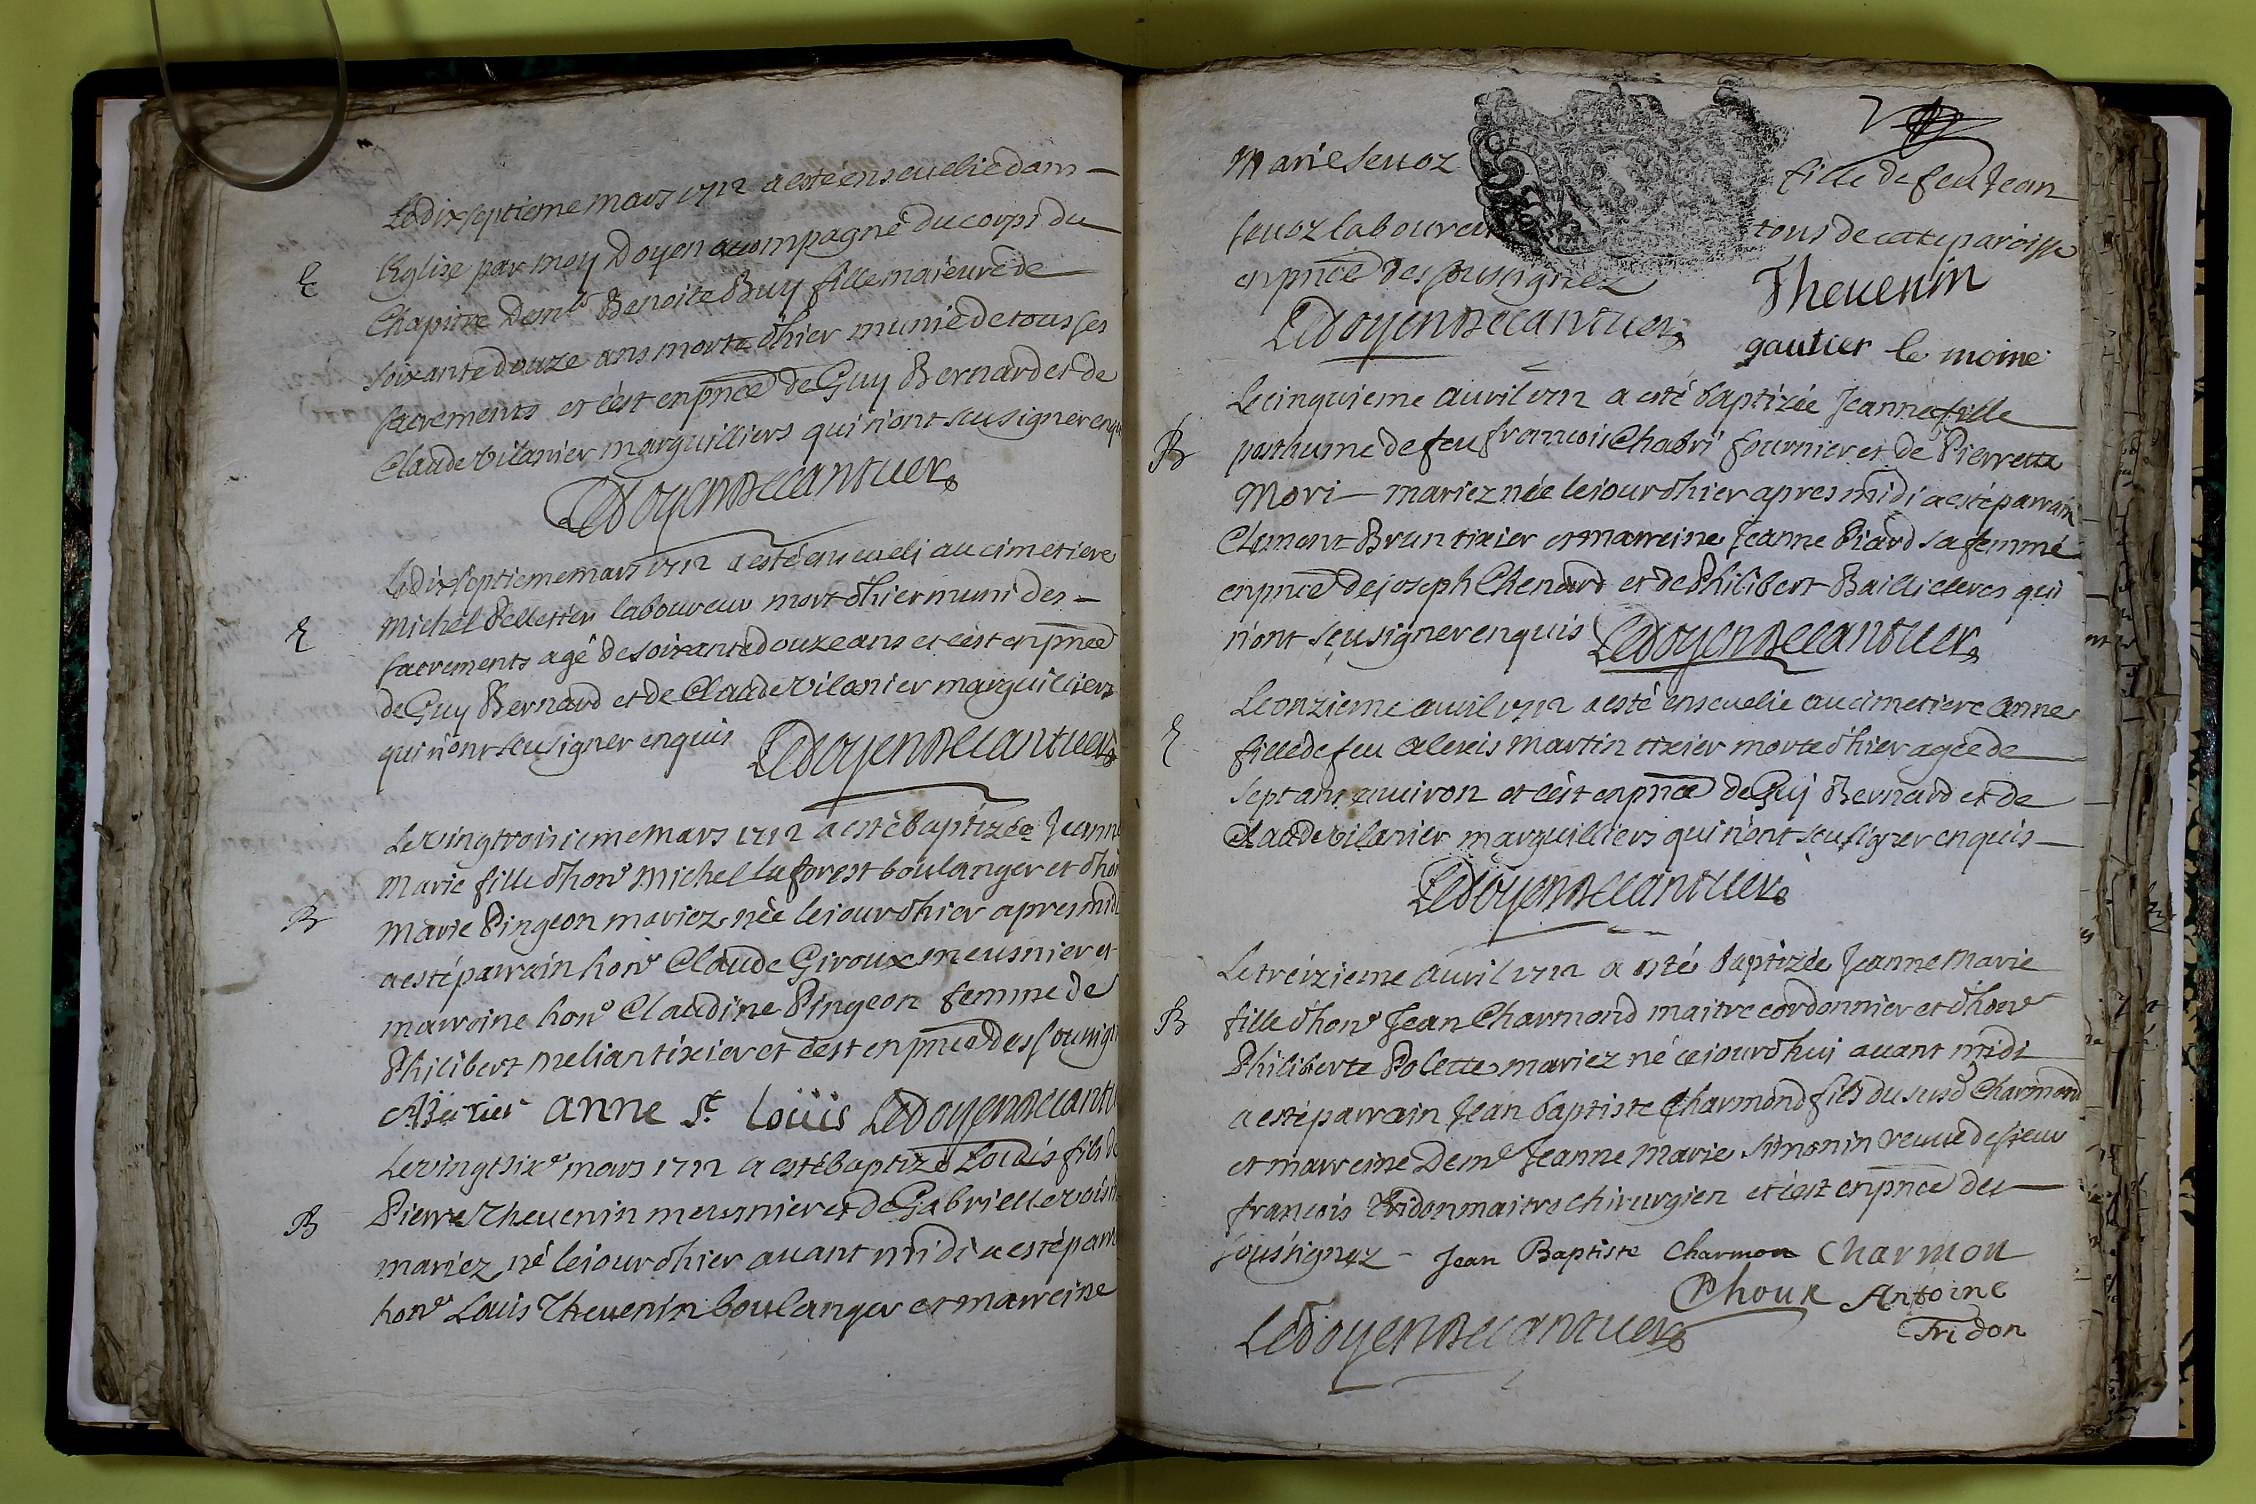 Le dix septieme mars 1712 a esté ensevelie dans
E
l'Eglise par moy Doyen acompagné du corps du
Chapitre Demlle Benoite Buy fille maieure de
soixante douze ans morte d'hier munie de tous ses
sacrements et c'est en pñce de Guy Bernard et de
Claude Vilanier marguilliers qui n'ont sçeu signer enqu
Le doyen Decantuer
Le dix septieme mars 1712 a esté enseveli au cimetiere
E
Michel Pelletier laboureur mort d'hier muni des
sacrements agé de soixante douze ans et c'est en pñce
de Guy Bernard et de Claude Vilanier marguilliers
qui n'ont sçeu signer enquis Le doyen Decantuer
Le vingtroisieme mars 1712 a esté baptizée Jeanne
Marie fille d'honẽ Michel laforest boulanger et d'hon
B
Marie Pingeon mariez née le iour d'hier apres midi
a esté parrain honẽ Claude Giroux meusnier et
marreine honẽ Claudine Pingeon femme de
Philibert Melian tixier et c'est en pñce des sousign
anne St. Loüis Le doyen Decantu
Le vingt sixẽ mars 1712 a esté baptizé Loüis fils de
B
Pierre Thevenin meusnier et de Gabrielle
mariez né le iour d'hier avant midi a esté parr
honẽ Louis Thevenin boulanger et marreine
Marie sevoz fille de feu Jean
sevoz laboureur tous de cette paroisse
en pñce des sousignez Thevenin
Le doyen Decantuer gautier le moine
Le cinquieme avril 1712 a esté baptizée Jeanne fille
B
posthume de feu francois Chabri fournier et de Pierrette
Mori mariez née le iour d'hier apres midi a esté parrain
Clement Brun tixier et marreine Jeanne Piard sa femme
en pñce de joseph Chenard et de Philibert Bailli clercs qui
n'ont sçeu signer enquis Le doyen Decantuer
Le onzieme avril 1712 a esté ensevelie au cimetiere Anne
E
fille de feu Alexis Martin tixier morte d'hier agée de
sept ans environ et c'est en pñce de Guy Bernard et de
Claude Vilanier marguilliers qui n'ont sçeu signer enquis
Le doyen Decantuer
Le treizieme avril 1712 a esté baptizée Jeanne Marie
B
fille d'honẽ Jean Charmond maitre cordonnier et d'honẽ
Philiberte Polette mariez né ce iourd'hui avant midi
a esté parrain Jean baptiste Charmond fils du susd Charmond
et marreine Demẽ Jeanne Marie Simonin veuve de sieur
francois Tridon maitre chirurgien et c'est en pñce des
sousignez Jean Baptiste Charmon Charmon
Choux Antoine
Le doyen Decantuer Tridon